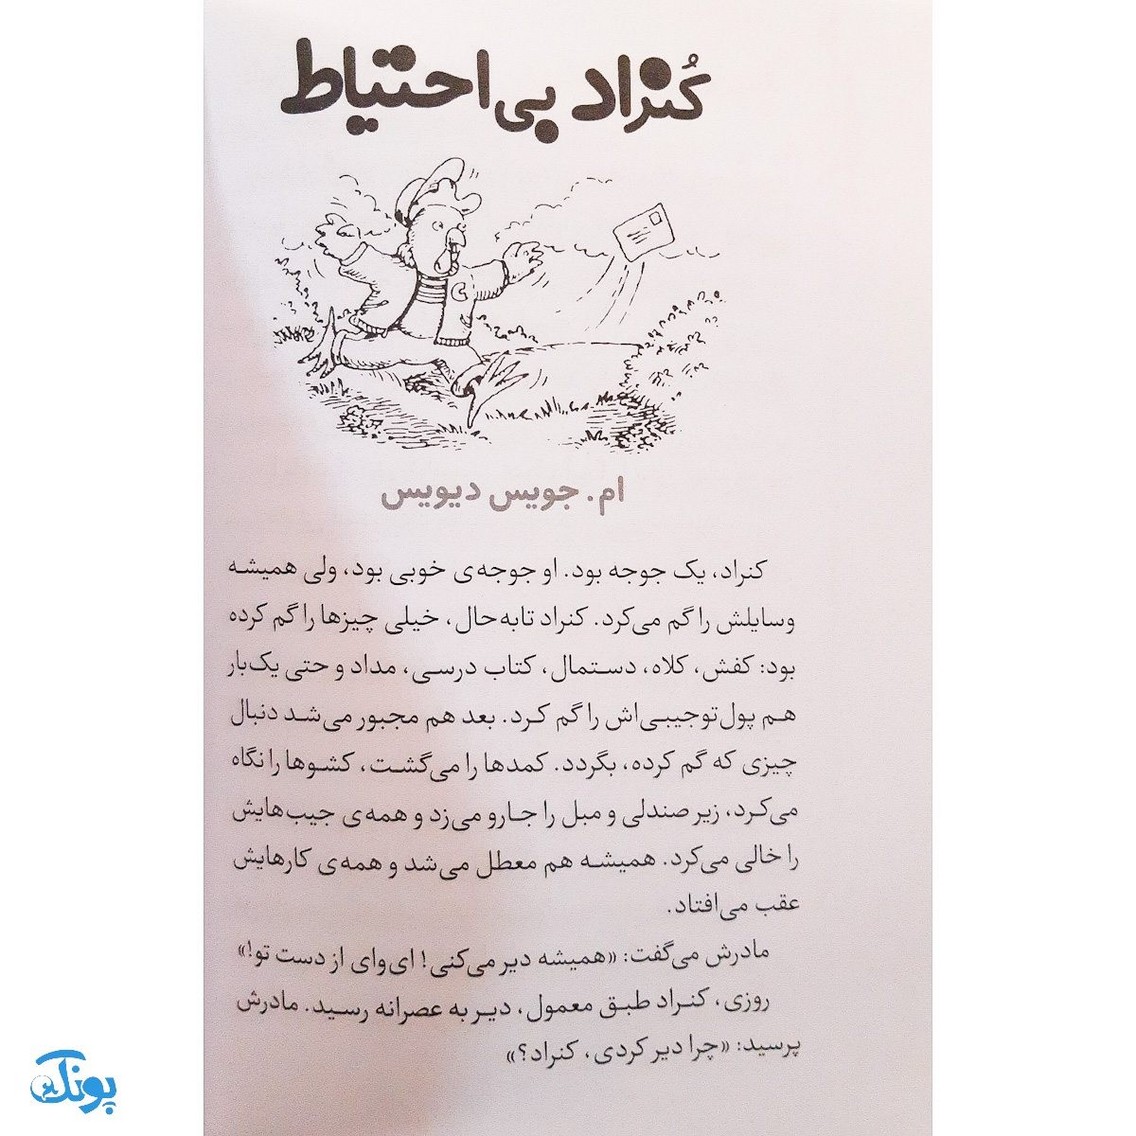 کُنراد بی‌احتیاط
ام. جویس دیویس
کنراد، یک جوجه بود. او جوجه‌ی خوبی بود، ولی همیشه
وسایلش را گم می‌کرد. کنراد تابه‌حال، خیلی چیزها را گم کرده
بود: کفش، کلاه، دستمال، کتاب درسی، مداد و حتی یک‌بار
هم پول‌توجیبی‌اش را گم کرد. بعد هم مجبور می‌شد دنبال
چیزی که گم کرده، بگردد. کمدها را می‌گشت، کشوها را نگاه
می‌کرد، زیر صندلی و مبل را جارو می‌زد و همه‌ی جیب‌هایش
را خالی می‌کرد. همیشه هم معطل می‌شد و همه‌ی کارهایش
عقب می‌افتاد.
مادرش می‌گفت: «همیشه دیر می‌کنی! ای‌وای از دست تو!»
روزی، کنراد طبق معمول، دیر به عصرانه رسید. مادرش
پرسید: «چرا دیر کردی، کنراد؟»
پونک